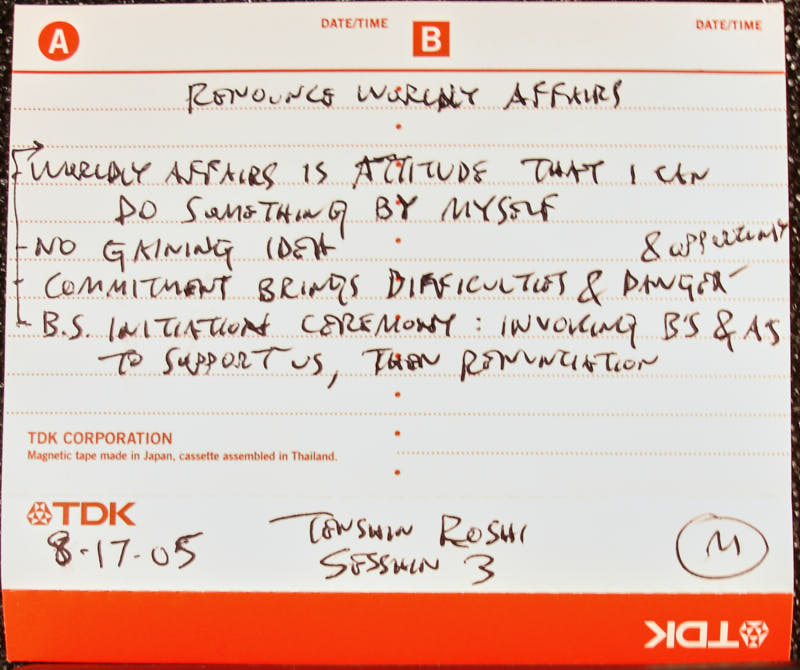 A DATE/TIME B DATE/TIME
RENOUNCE WORLDLY AFFAIRS
WORLDLY AFFAIRS IS ATTITUDE THAT I CAN
DO SOMETHING BY MYSELF
NO GAINING IDEA
& OPPORTUNITY
COMMITMENT BRINGS DIFFICULTIES & DANGER
B.S. INITIATION CEREMONY : INVOKING B'S & A'S
TO SUPPORT US, THEN RENUNTIATION
TDK CORPORATION
Magnetic tape made in Japan, cassette assembled in Thailand.
TDK
8-17-05
TENSHIN ROSHI
SESSHIN 3
M
TDK